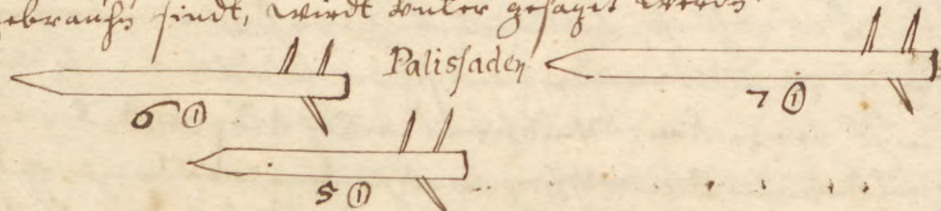 gebrauchn sindt, wirdt unter gesaget werdn
Palissaden
6 ① 7 ①
5 ①